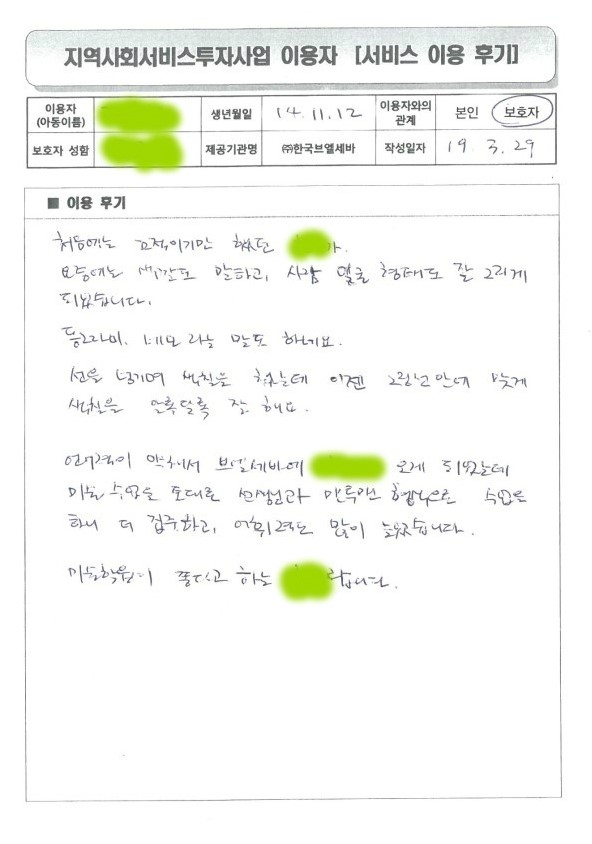 지역사회서비스투자사업 이용자 [서비스 이용 후기]
이용자 (아동이름) 생년월일 14.11.12 이용자와의 관계 본인 보호자
보호자 성함 제공기관명 ㈜한국브엘세바 작성일자 19.3.29
■ 이용 후기
처음에는 끄적이기만 했던 가.
요즘에는 색깔도 말하고, 사람 얼굴 형태도 잘 그리게
되었습니다.
동그라미, 네모 라는 말도 하네요.
선을 넘기며 색칠을 했는데 이젠 그림선 안에 맞게
색칠을 알록달록 잘 해요.
언어력이 약해서 브엘세바에 오게 되었는데
미술 수업을 토대로 선생님과 맨투맨 형식으로 수업을
하니 더 집중하고, 어휘력도 많이 늘었습니다.
미술학원이 좋다고 하는 랍니다.